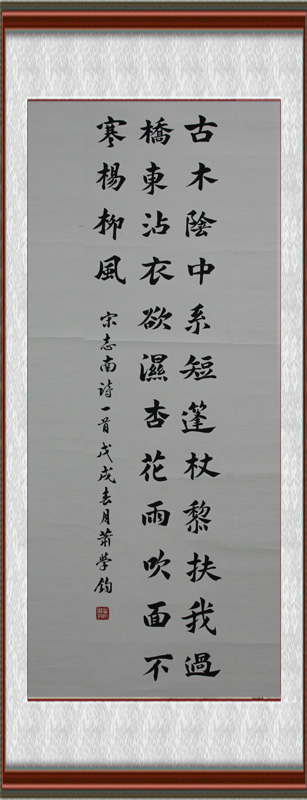 古木陰中系短篷杖黎扶我過
橋東沾衣欲濕杏花雨吹面不
寒楊柳風
宋志南诗一首戊戌春月萧學鈞